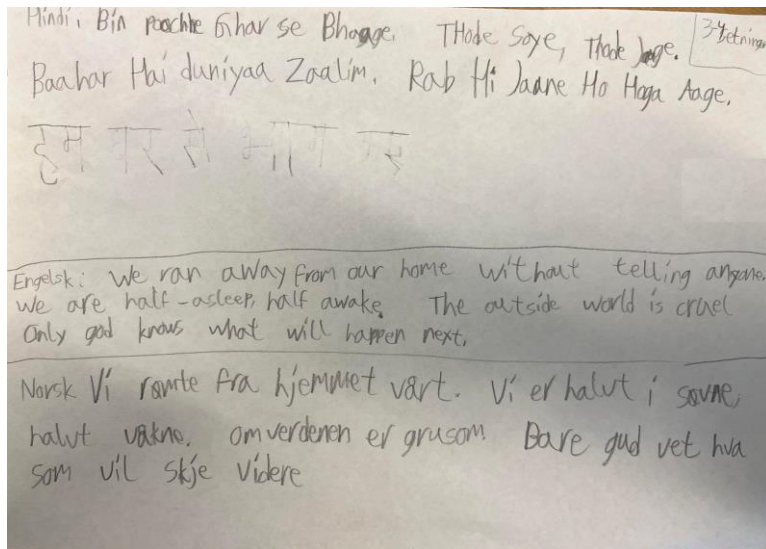 Hindi: Bin poochhe Ghar se Bhaage. THode Soye, Thode Jage.
3-4 setninger
Baahar Hai duniyaa Zaalim. Rab Hi Jaane Ho Hoga Aage.
हम घर से भाग गए
Engelsk: We ran away from our home without telling anyone.
we are half-asleep, half awake. The outside world is cruel
Only god knows what will happen next.
Norsk Vi rømte fra hjemmet vårt. Vi er halvt i søvne,
halvt våkne. omverdenen er grusom Bare gud vet hva
som vil skje videre